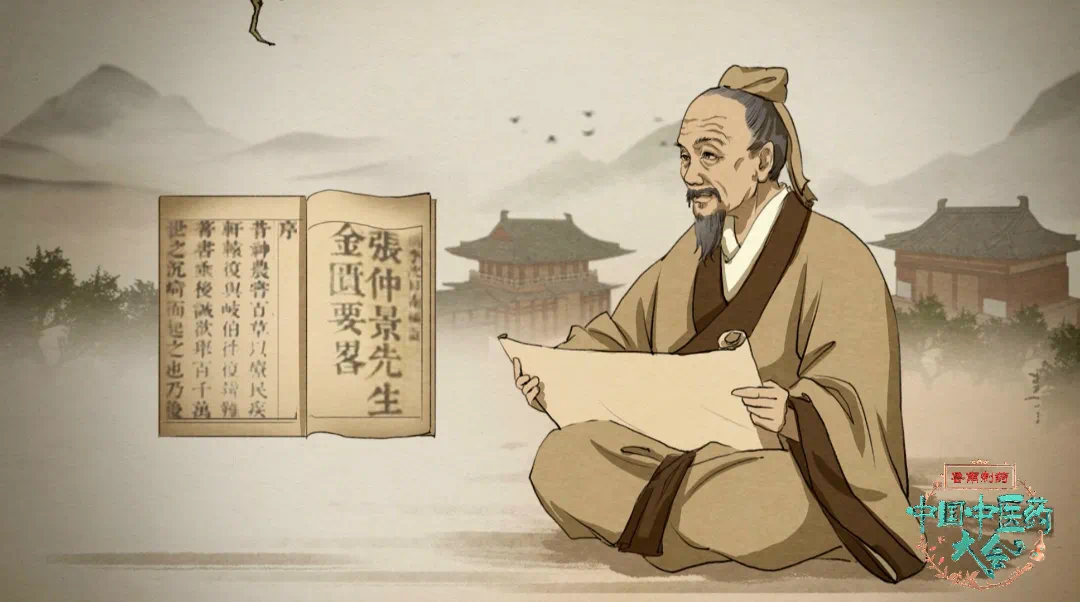 張仲景先生
金匱要畧
序
昔神農嘗百草以療民疾
軒轅復與岐伯辯難
著書垂後誠欲舉百千萬
世之沉痾而起之也乃後
鲁南制药
中国中医药
大会